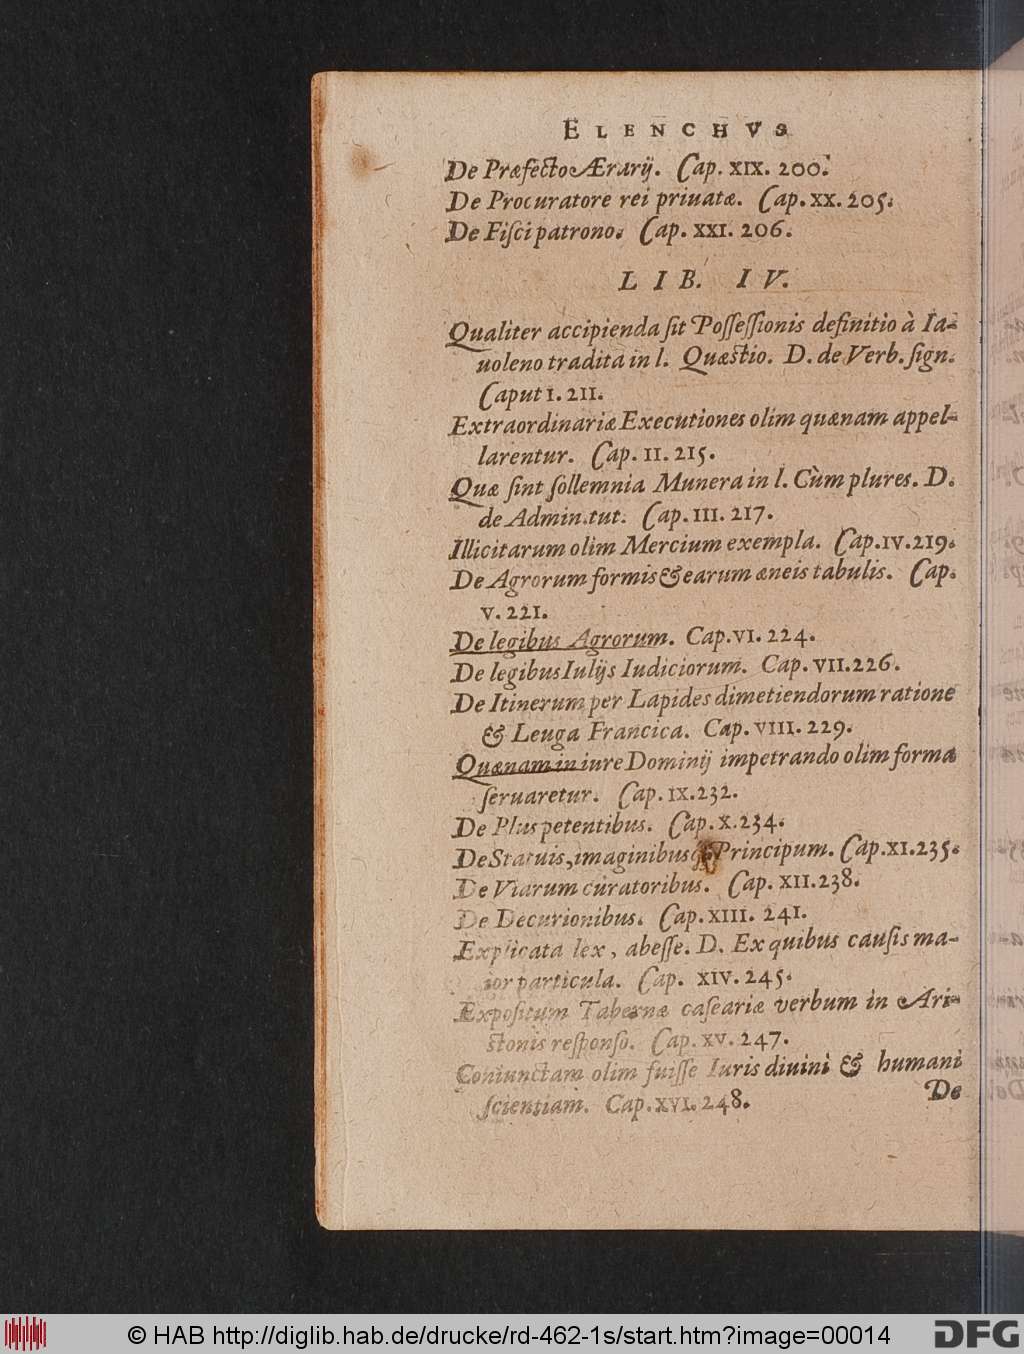 ELENCHVS
De Præfecto Ærarij. Cap. XIX. 200.
De Procuratore rei priuatæ. Cap. XX. 205.
De Fiſci patrono. Cap. XXI. 206.
LIB. IV.
Qualiter accipienda ſit Poſſeſſionis definitio à Ia-
uoleno tradita in l. Quæstio. D. de Verb. ſign.
Caput I. 211.
Extraordinariæ Executiones olim quænam appel-
larentur. Cap. II. 215.
Quæ ſint ſollemnia Munera in l. Cùm plures. D.
de Admin. tut. Cap. III. 217.
Illicitarum olim Mercium exempla. Cap. IV. 219.
De Agrorum formis & earum æneis tabulis. Cap.
V. 221.
De legibus Agrorum. Cap. VI. 224.
De legibus Iulijs Iudiciorum. Cap. VII. 226.
De Itinerum per Lapides dimetiendorum ratione
& Leuga Francica. Cap. VIII. 229.
Quænam in iure Dominij impetrando olim forma
ſeruaretur. Cap. IX. 232.
De Plus petentibus. Cap. X. 234.
De Statuis, imaginibus Principum. Cap. XI. 235.
De Viarum curatoribus. Cap. XII. 238.
De Decurionibus. Cap. XIII. 241.
Explicata lex, abeſſe. D. Ex quibus cauſis ma-
ior particula. Cap. XIV. 245.
Expoſitum Tabernæ caſeariæ verbum in Ari-
stonis reſponſo. Cap. XV. 247.
Coniunctam olim fuiſſe Iuris diuini & humani
ſcientiam. Cap. XVI. 248.
De
© HAB http://diglib.hab.de/drucke/rd-462-1s/start.htm?image=00014
DFG